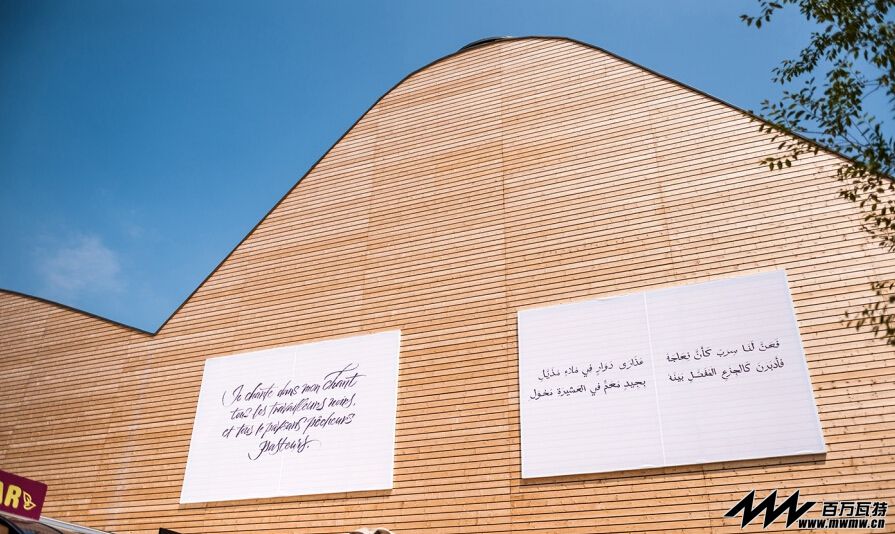 Je chante dans mon chant
tous les travailleurs noirs,
et tous le paysans pêcheurs
pasteurs.
فَعَنَّ لَنا سِربٌ كَأَنَّ نِعاجَهُ عَذارى دَوارٍ في مُلاءٍ مُذَيَّلِ
فَأَدبَرنَ كَالجِزعِ المُفَصَّلِ بَينَهُ بِجيدِ مُعَمٍّ في العَشيرَةِ مُخوَلِ
AR
百万瓦特
www.mwmw.cn